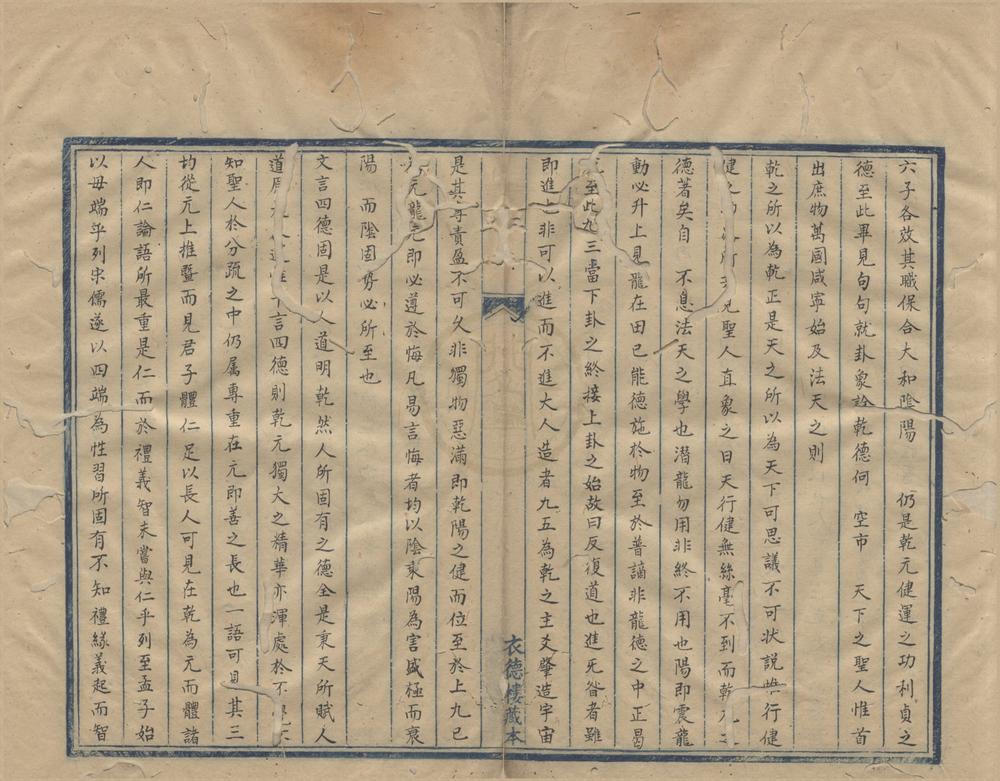 六子各效其職保合大和陰陽 仍是乾元健運之功利貞之
德至此畢見句句就卦象詮乾德何 空市 天下之聖人惟首
出庶物萬國咸寧始及法天之則
乾之所以為乾正是天之所以為天下可思議不可狀說惟行健
健之 聖人直象之曰天行健無絲毫不到而乾元之
德著矣自 不息法天之學也潛龍勿用非終不用也陽即震龍
動必升上見龍在田已能德施於物至於普謫非龍德之中正曷
至此九三當下卦之終接上卦之始故曰反復道也進无咎者雖
即進也非可以進而不進大人造者九五為乾之主爻肇造宇宙
是其尊貴盈不可久非獨物惡滿即乾陽之健而位至於上九已
亢龍亢即必遵於悔凡易言悔者均以陰乘陽為言盛極而衰
陽 而陰固勢必所至也
文言四德固是以人道明乾然人所固有之德全是秉天所賦人
道 言四德則乾元獨大之精華亦渾處於不
知聖人於分疏之中仍属專重在元即善之長也一語可 其三
均從元上推暨而見君子體仁足以長人可見在乾為元而體諸
人即仁論語所最重是仁而於禮義智未嘗與仁乎列至孟子始
以毋端乎列宋儒遂以四端為性習所固有不知禮緣義起而智
衣德樓藏本